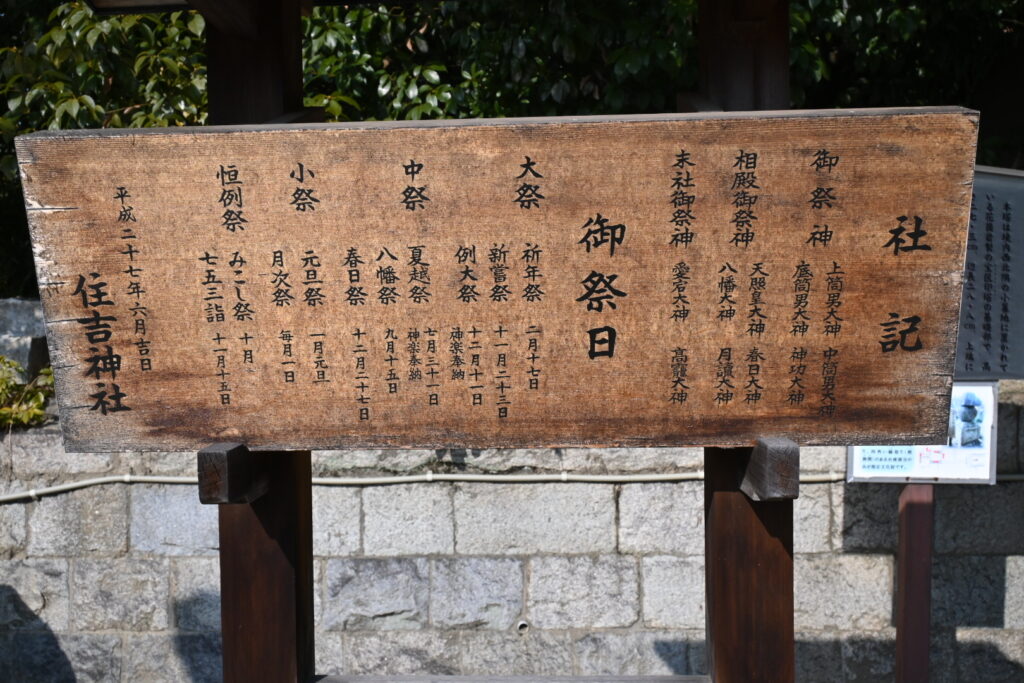 社記
御祭神
上筒男大神 中筒男大神
底筒男大神 神功大神
相殿御祭神
天照皇大神 春日大神
八幡大神 月讀大神
末社御祭神
愛宕大神 高龗大神
御祭日
大祭
祈年祭 二月十七日
新嘗祭 十一月二十三日
例大祭 十二月十一日
神楽奉納
中祭
夏越祭 七月三十一日
神楽奉納
八幡祭 九月十五日
春日祭 十二月二十七日
小祭
元旦祭 一月元旦
月次祭 毎月一日
恒例祭
みこし祭 十月
七五三詣 十一月十五日
平成二十七年六月吉日
住吉神社